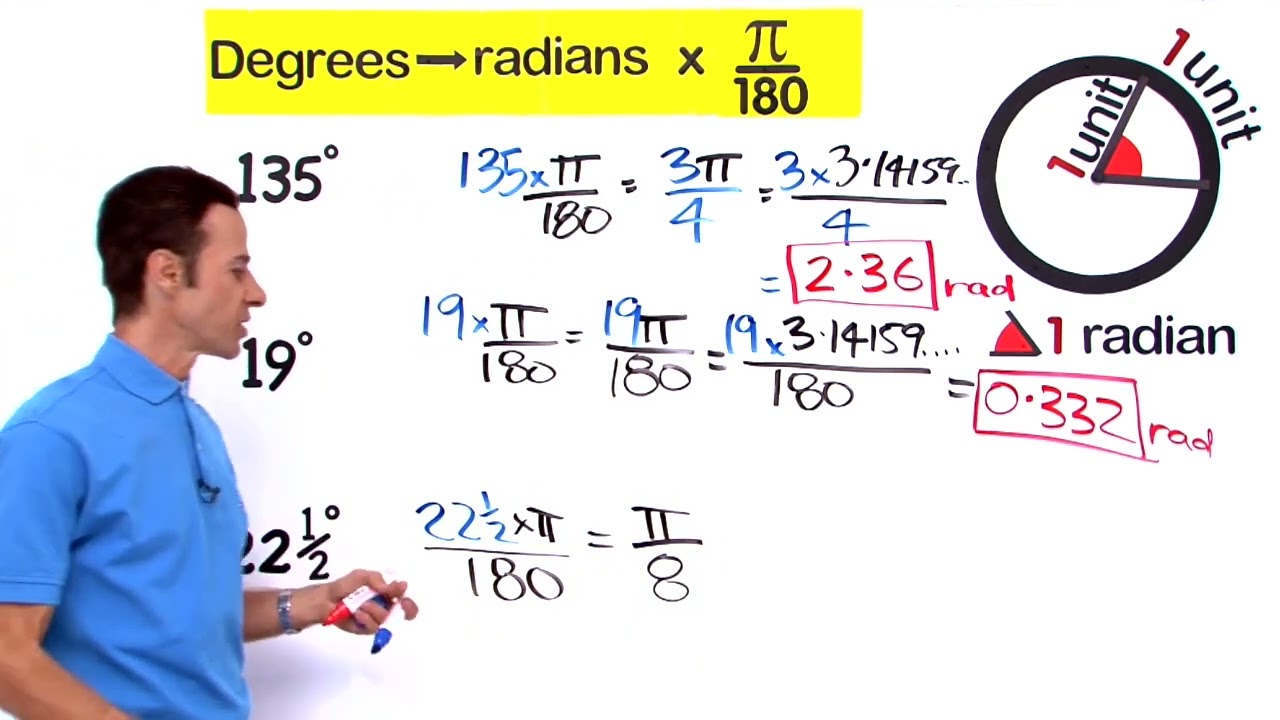 Degrees→radians x π/180
1 unit
1 unit
135° 135×π/180 = 3π/4 = 3×3·14159../4
= 2·36 rad
1 radian
19° 19×π/180 = 19π/180 = 19×3·14159..../180 = 0·332 rad
22½° 22½×π/180 = π/8